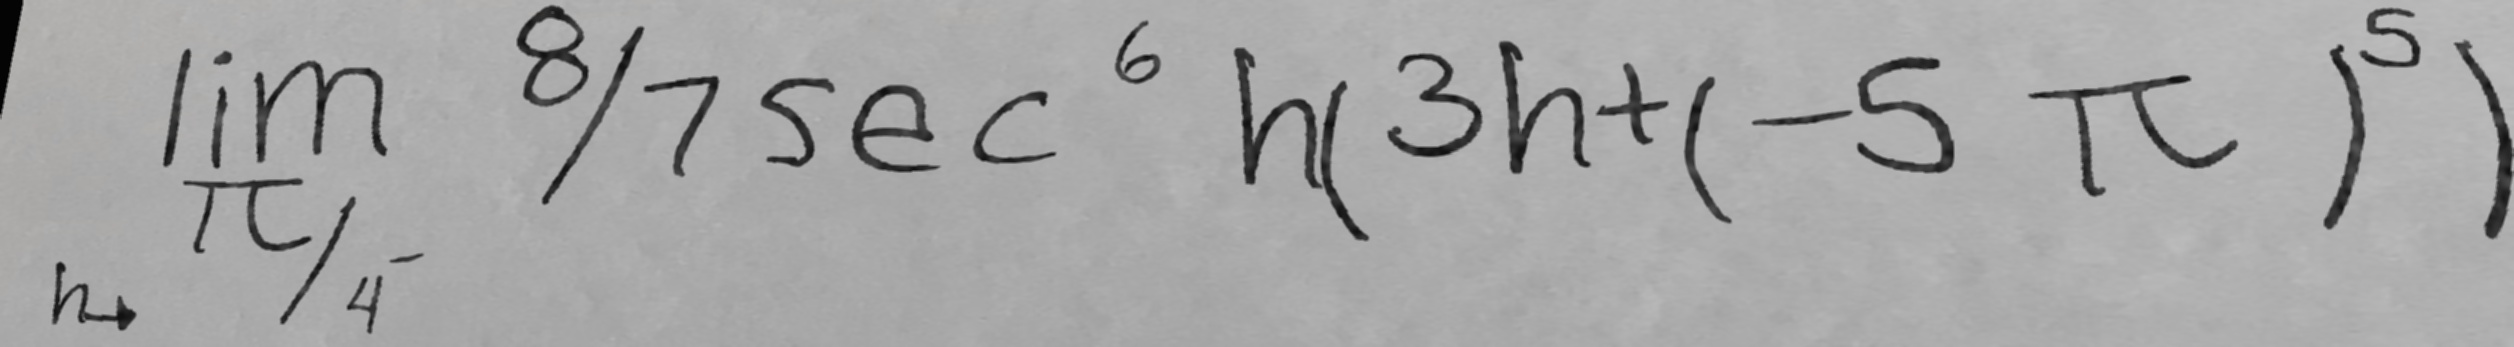 \lim_{h \to \pi/4^-} 8/7 \sec^6 h(3h+(-5\pi)^5)